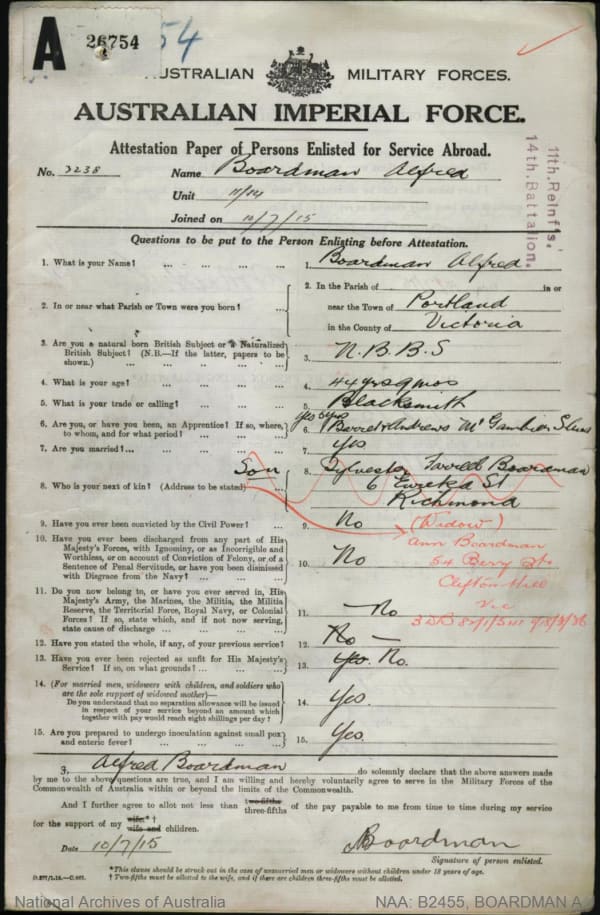 A 26754 54
AUSTRALIAN MILITARY FORCES.
AUSTRALIAN IMPERIAL FORCE.
Attestation Paper of Persons Enlisted for Service Abroad.
11th. Reinf'ts.
14th. Battalion.
No. 3238 Name Boardman Alfred
Unit 11/14
Joined on 10/7/15
Questions to be put to the Person Enlisting before Attestation.
1. What is your Name? ... ... ... ... 1. Boardman Alfred
2. In or near what Parish or Town were you born? ... 2. In the Parish of in or
near the Town of Portland
in the County of Victoria
3. Are you a natural born British Subject or a Naturalized
British Subject? (N.B.—If the latter, papers to be
shown.) ... ... ... ... 3. N.B.B.S
4. What is your age? ... ... ... ... 4. 44 yrs 9 mos
5. What is your trade or calling? ... ... ... 5. Blacksmith
6. Are you, or have you been, an Apprentice? If so, where,
to whom, and for what period? ... ... 6. Yes 5 yrs Barrett Andrews Mt Gambier
7. Are you married? ... ... ... ... 7. Yes
8. Who is your next of kin? (Address to be stated) ... Son 8. Sylvester Boardman
6 Eureka St
Richmond
9. Have you ever been convicted by the Civil Power? ... 9. No
(Widow)
Ann Boardman
54 Berry St
Clifton Hill
Vic
10. Have you ever been discharged from any part of His
Majesty's Forces, with Ignominy, or as Incorrigible and
Worthless, or on account of Conviction of Felony, or of a
Sentence of Penal Servitude, or have you been dismissed
with Disgrace from the Navy? ... ... 10. No
11. Do you now belong to, or have you ever served in, His
Majesty's Army, the Marines, the Militia, the Militia
Reserve, the Territorial Force, Royal Navy, or Colonial
Forces? If so, state which, and if not now serving,
state cause of discharge ... ... ... 11. No
12. Have you stated the whole, if any, of your previous service? 12. No —
13. Have you ever been rejected as unfit for His Majesty's
Service? If so, on what grounds? ... ... 13. Yes. No.
14. (For married men, widowers with children, and soldiers who
are the sole support of widowed mother)—
Do you understand that no separation allowance will be issued
in respect of your service beyond an amount which
together with pay would reach eight shillings per day? 14. Yes.
15. Are you prepared to undergo inoculation against small pox
and enteric fever? ... ... ... 15. Yes.
I, Alfred Boardman do solemnly declare that the above answers made
by me to the above questions are true, and I am willing and hereby voluntarily agree to serve in the Military Forces of the
Commonwealth of Australia within or beyond the limits of the Commonwealth.
And I further agree to allot not less than two-fifths three-fifths of the pay payable to me from time to time during my service
for the support of my wife* † wife and children.
Date 10/7/15
A Boardman
Signature of person enlisted.
*This clause should be struck out in the case of unmarried men or widowers without children under 18 years of age.
† Two-fifths must be allotted to the wife, and if there are children three-fifths must be allotted.
National Archives of Australia
NAA: B2455, BOARDMAN A